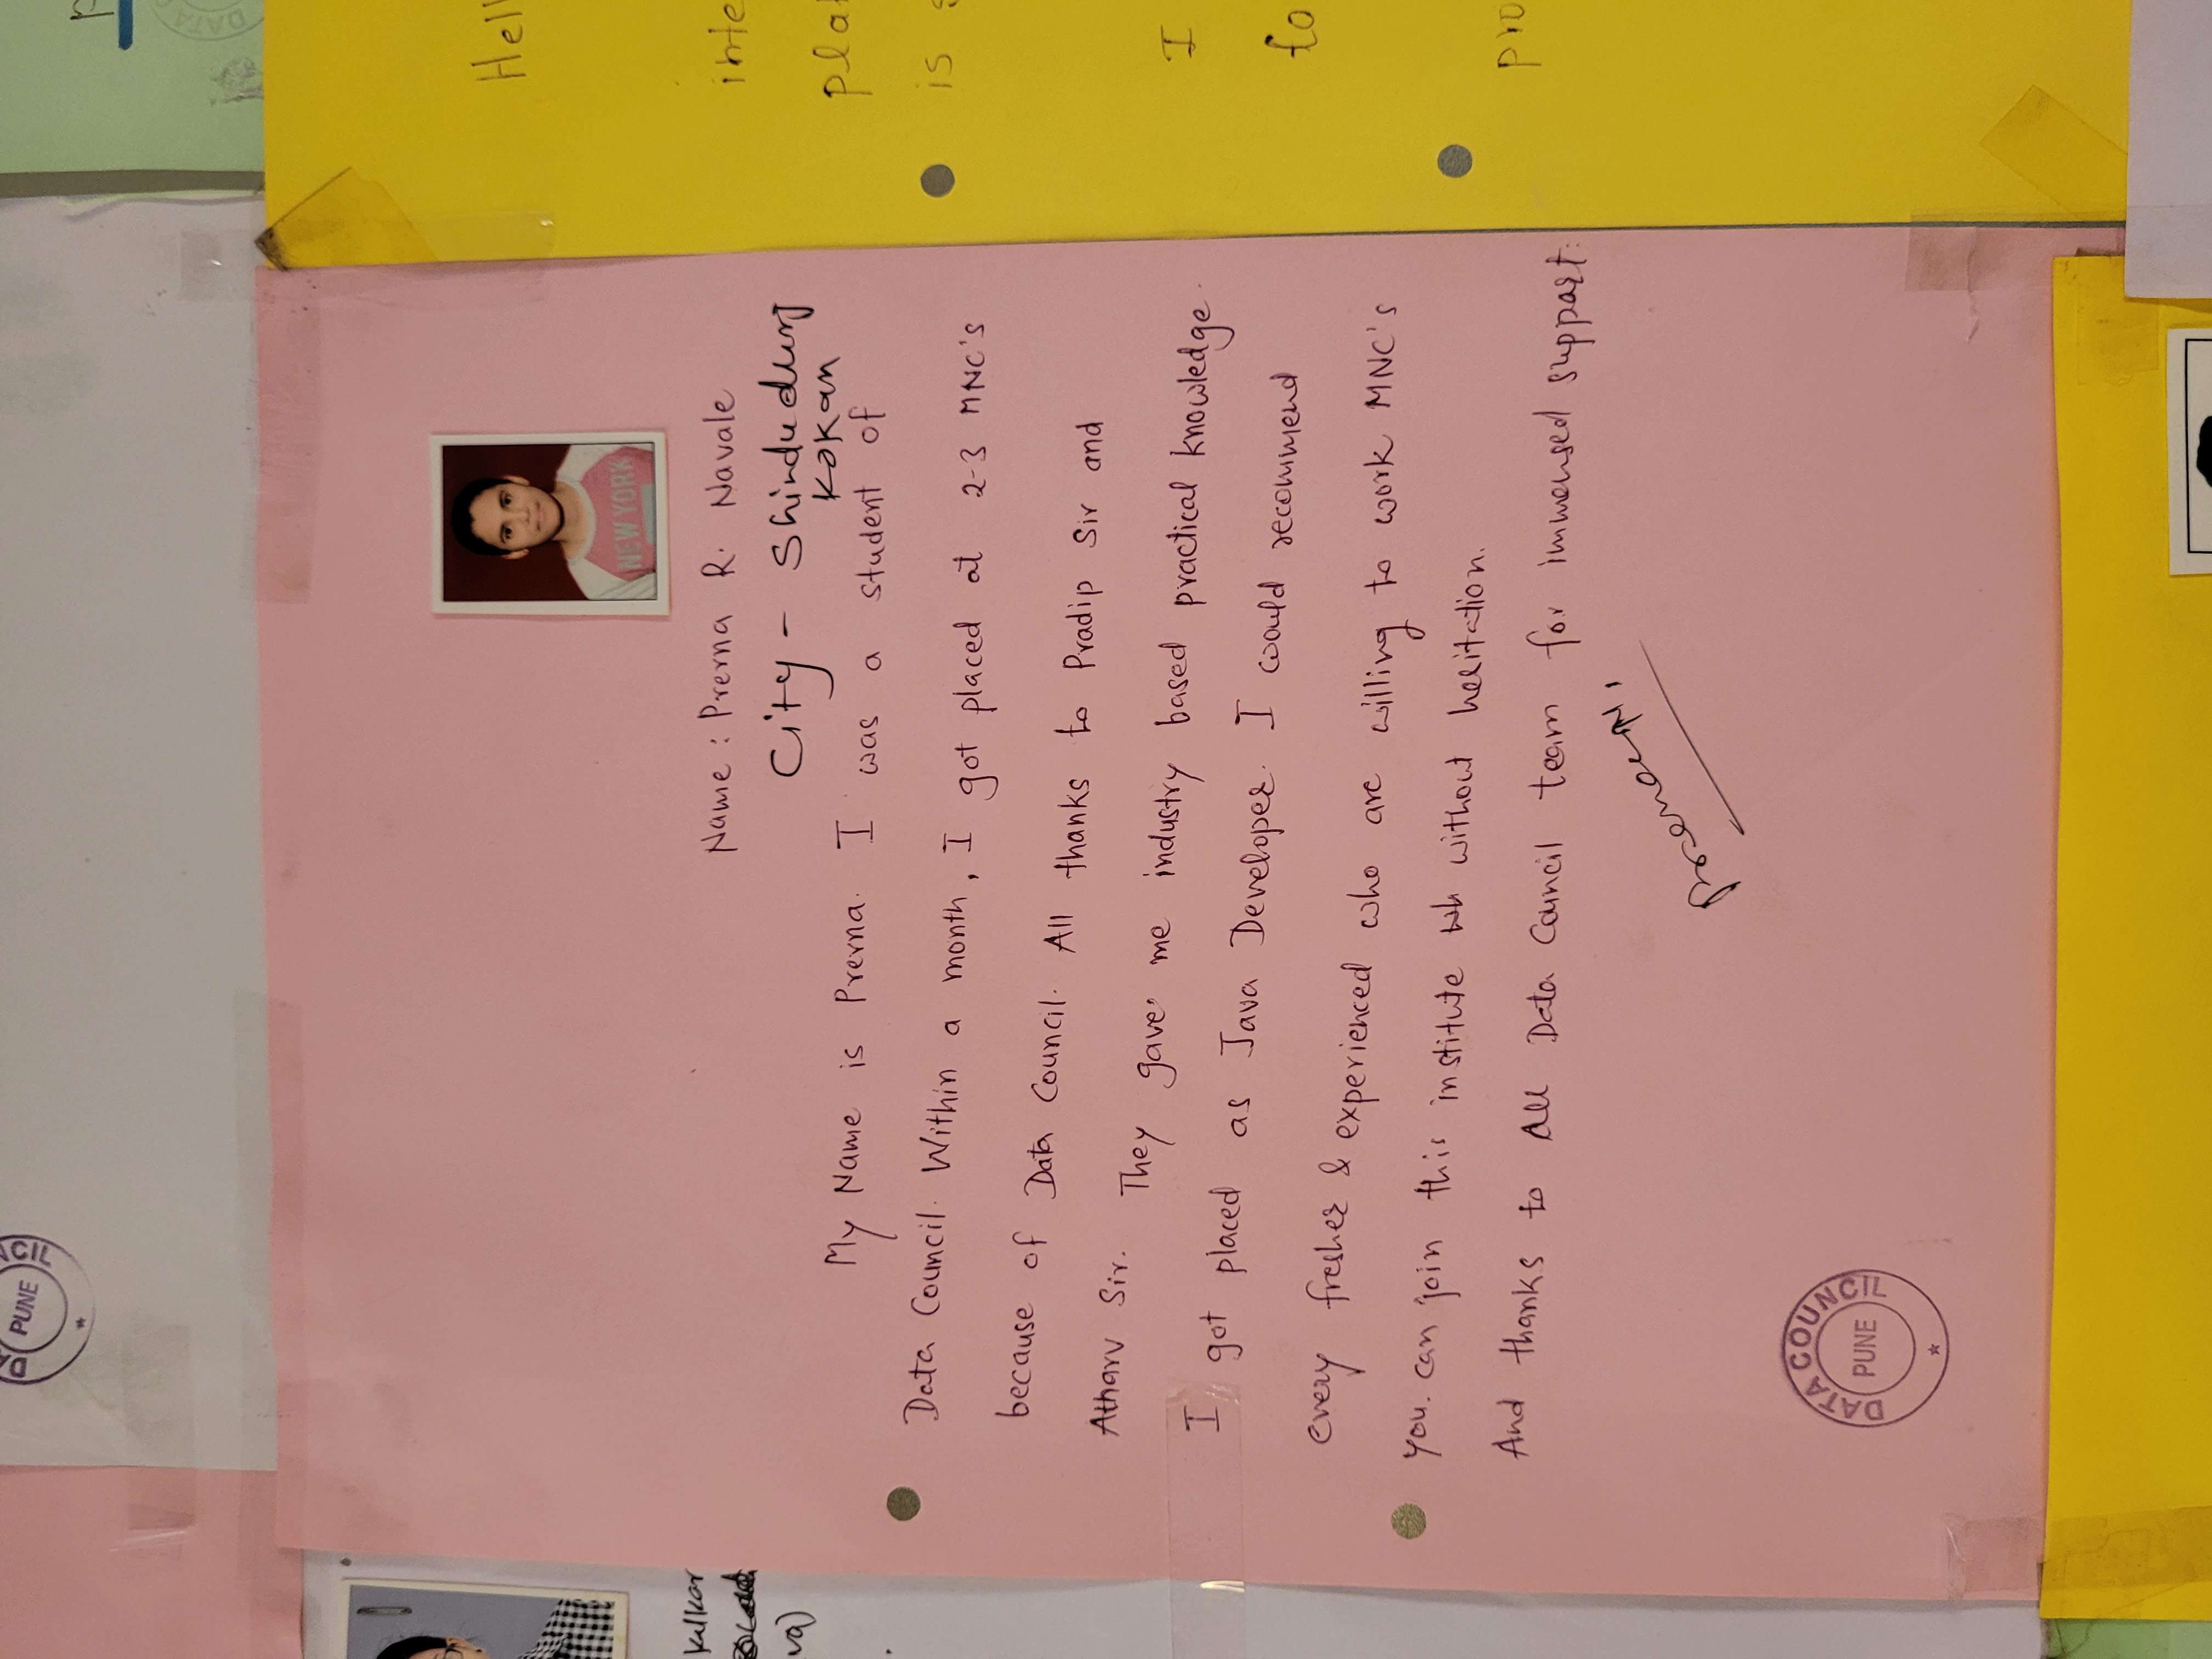 Name : Prerna R. Navale
City - Shindudurg
Kokan
My Name is Prerna. I was a student of
Data Council. Within a month, I got placed at 2-3 MNC's
because of Data Council. All thanks to Pradip Sir and
Atharv Sir. They gave me industry based practical knowledge.
I got placed as Java Developer. I would recommend
every fresher & experienced who are willing to work MNC's
you can join this institute wh without hesitation.
And thanks to All Data Council team for immensed support.
DATA COUNCIL
PUNE
NEW YORK
Hell
inte
plat
is
I
to
pro
DATA
NCIL
PUNE
kulkar
va)